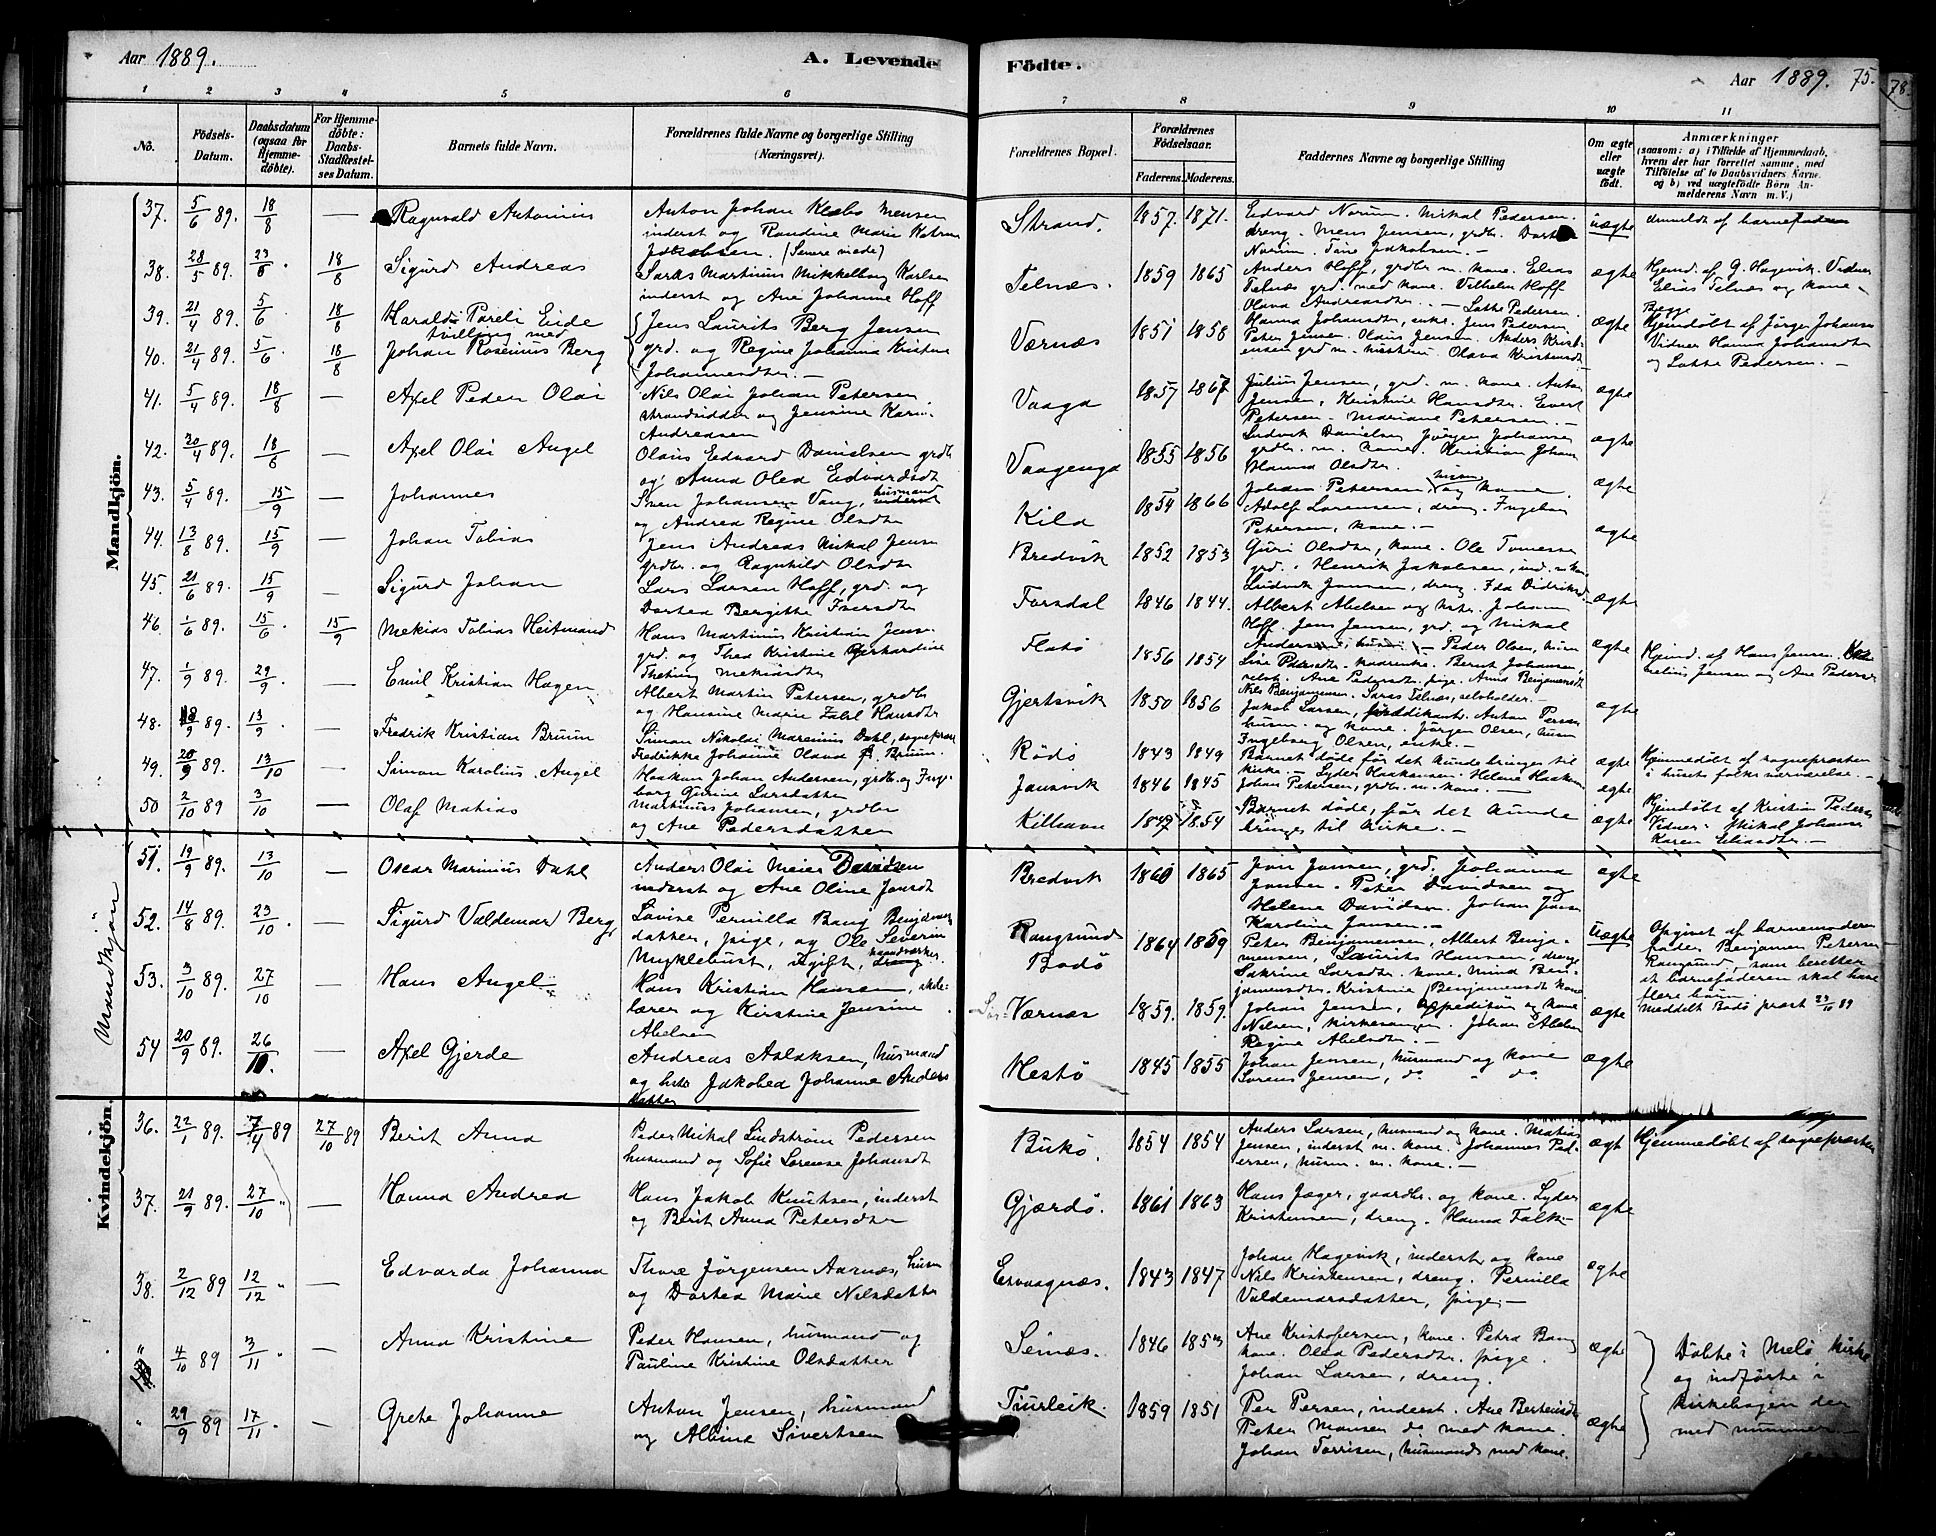 Aar 1889. A. Levende Fødte. Aar 1889. 75. 78.
1 2 3 4 5 6 7 8 9 10 11
No. Fødsels-Datum. Daabsdatum (ogsaa for Hjemmedøbte). For Hjemmedøbte: Daabs-Stadfæstelses Datum. Barnets fulde Navn. Forældrenes fulde Navne og borgerlige Stilling (Næringsvei). Forældrenes Bopæl. Forældrenes Fødselsaar. Faderens. Moderens. Faddernes Navne og borgerlige Stilling Om ægte eller uægte født. Anmærkninger (saasom: a) i Tilfælde af Hjemmedaab, hvem der har forrettet samme, med Tilføielse af to Daabsvidners Navne, og b) ved uægtefødte Børn Anmelderens Navn m. V.)
Mandkjøn.
37. 5/6 89. 18/8 — Ragnvald Antonius Anton Johan Klæbo Mensen Strand. 1857. 1871. Edvard Norum. Mikal Pedersen. uægte anmeldt af barnefaderen
inderst og Randine Marie Katrine dreng. Mens Jensen, grdbr.
Jakobsen. (Senere viede) Norum. Tine Jakobsen. —
38. 28/5 89. 23/6. 18/8 Sigurd Andreas Martinus Mikkelborg Karlsen Telnæs. 1859 1865 Anders Hoff, grdbr m. kone. Elias ægte Hjemd. af G. Hagevik. Vidner
inderst og Ane Johanne Hoff Telnæs grd. med kone. Vilhelm Hoff Elias Telnæs og kone
Olava Andreasdtr. — Lotte Pedersen.
39. 21/4 89. 5/6 18/8 Harald Pareli Eide Jens Laurits Berg Jensen Værnæs 1851 1858 Hanna Johansdtr, enke. Jens Pedersen ægte Begge Hjemdøbt af Jørgen Johansen
tvilling med
40. 21/4 89. 5/6. 18/8 Johan Rosenius Berg grd. og Regine Johanna Kristine Peter Jensen. Olaus Jensen. Anders Kristensen Vidner Hanna Johansdtr
Johannesdtr. — grd m. hustru. Olava Kristensdtr og Lotte Pedersen. —
41. 5/4 89. 18/8 — Axel Peder Olai Nils Olai Johan Petersen Vaaga 1857 1867 Julius Jensen, grd. m. kone. Anton ægte
strandsidder og Jensine Karen Jensen, Kristine Hansdtr. Evert
Andreasen Petersen. Mariane Petersen. —
42. 30/4 89. 18/8 — Axel Olai Angel Olaus Edvard Danielsen grdbr Vaagenga 1855 1856 Ludvik Danielsen Jørgen Johansen ægte
og Anna Olea Edvardsdt grdbr. m. kone. Kristian Johan
Hanna Olsdtr.
43. 5/4 89. 15/9 — Johannes Sven Johansen Vang, husmand Kila 1854 1866 Johan Petersen, husm og kone. ægte
og Andrea Regine Olsdtr Adolf Lorensen, dreng. Ingebor
Petersen, kone. —
44. 13/8 89. 15/9 — Johan Tobias Jens Andreas Mikal Jensen Bredvik 1852 1853 Guri Olsdtr, kone. Ole Tomesen ægte
grdbr. og Ragnhild Olsdtr grd. Henrik Jakobsen, ind. m. kone
45. 21/6 89. 15/9 — Sigurd Johan Lars Larsen Hoff, grd. og Forsdal 1846 1844. Ludvik Jansen, dreng. Ida Didriksd. ægte
Dortea Bergitte Iversdtr Albert Abelsen og hstr. Johan
46. 1/6 89. 15/6. 15/9 Mekias Tobias Heitmand Hans Martinus Kristian Jensen Flatø 1856 1854 Hoff. Jens Jensen, grd. og Mikal ægte Hjemd. af Hans Jensen.
grd. og Thea Kristine Gerhardine Andersen, husm. — Peder Olsen, husm Jensen og Ane Pedersen
Mekiasdtr Lise Pedersdtr. Bernt Johansen,
47. 1/9 89. 29/9. — Emil Kristian Hagen Albert Martin Petersen, grdbr Gjertsvik 1850 1856 Ane Pedersdtr. pige. Anna Benjamensdt ægte
og Hansine Marie Hansdtr Nils Benjamensen. Telnæs, selvholder.
48. 18/9 89. 13/9. — Fredrik Kristian Bruun Simon Nikolai Marenius Dahl, sognepræst Rødø 1843 1849 Jakob Larsen. Anton Persen ægte Hjemmedøbt af sognepræsten
Fredrikke Johanne Olava f. Bruun. husm. og kone. Jørgen Olsen, husm i huset folks nærværelse. —
Ingeborg Olsen, enke. —
49. 20/9 89. 13/10 — Simon Karolius Angel Haakon Johan Andersen, grdbr. og Inge- Jensvik 1846 1845 Barnet døde før det kunde bringes til kirke. — Lyder Haakensen. Helene Haaken ægte
borg Gurine Larsdatter Johan Petersen, grdbr. m. kone. —
50 2/10 89 3/10 — Olaf Matias Martinus Johansen, grdbr Kilhavn 1847 1854 Barnet døde, før det kunde ægte Hjemdøbt af Kristian Pedersen
og Ane Pedersdatter bringes til kirke. — Vidner: Mikal Johansen
Karen Eliasdtr. —
Mandkjøn
51. 19/9 89. 13/10 — Oscar Marinius Dahl Anders Olai Meier Davidsen Bredvik 1860 1865 Jon Jonsen, grd. Johanna ægte
inderst og Ane Oline Jonsdt Jonsen. Peter Davidsen og
Helene Davidsen. Johan Jonsen
Karoline Jonsen. —
52. 14/8 89. 23/10. — Sigurd Valdemar Berg Lovise Pernilla Bang Benjamens- Rangsund 1864 1859 Peter Benjamensen, Albert Benja- uægte Opgivet af barnemoderens
datter, pige, og Ole Severin Bodø mensen, Laurits Hansen, dreng. fader Benjamen Petersen
Myklebust, ugift, haandværker. Larsdtr. kone, Mina Ben- Rangsund, som beretter
jamensdtr. Kristine Benjamensdt kone at barnefaderen skal have
flere børn.
53. 3/10 89. 27/10 — Hans Angel Hans Kristian Hansen, skole- Værnæs 1859. 1859. Johan Jensen, expeditør og kone ægte Meddelt Bodø præst 23/10 89
lærer og Kirstine Jensine Nilsen, kirkesanger. Johan Abelsen
Abelsen Regine Abelsdtr. —
54 20/9 89. 26/10. — Axel Gjerde Andreas Aslaksen, husmand Hestø 1845 1855 Johan Jensen, husmand og kone ægte
og hstr Jakobea Johanne Anders Lorens Jensen, do " do
datter
Kvindekjøn.
36. 22/1 89. 7/4 89 27/10 89 Berit Anna Peder Mikal Lindstrøm Pedersen Bukø. 1854 1854 Anders Larsen, husmand og kone. Matias ægt Hjemmedøbt af sognepræsten
husmand og Sofie Lorense Johansdt Jensen, inderst m. kone. Johannes Ped-
ersen, husm. m. kone. —
37. 21/9 89. 27/10 " — Hanna Andrea Hans Jakob Knutsen, inderst Gjærdø. 1861 1863 Hans Jæger, gaardbr. og kone. Lyder ægte
og Berit Anna Petersdtr Kristensen, dreng. Hanna Falk —
38. 2/12 89 12/12 " — Edvarda Johanna Thore Jørgensen Aarnæs, husm Esvaagnæs. 1843 1847 Johan Hagevik, inderst og kone ægte
og Dortea Marie Nilsdatter Nils Kristensen, dreng. Pernilla
Valdemarsdatter, pige. —
" 4/10 89 3/11 " — Anna Kristine Peder Hansen, husmand og Seinæs. 1846 1853 Ane Kristofersen, kone. Petra Bang ægte Døbte i Melø kirke
Pauline Kristine Olsdatter kone. Olea Pedersdtr. pige. og indførte i
Johan Larsen, dreng. kirkebogen der
" 29/9 89 17/11 — Grete Johanne Anton Jensen, husmand 1859 1851 Per Persen, inderst. Ane ægte med nummer. —
og Albine Sivertsen Peter Monsen do med kone.
Johan Torrisen, husmand med kone.